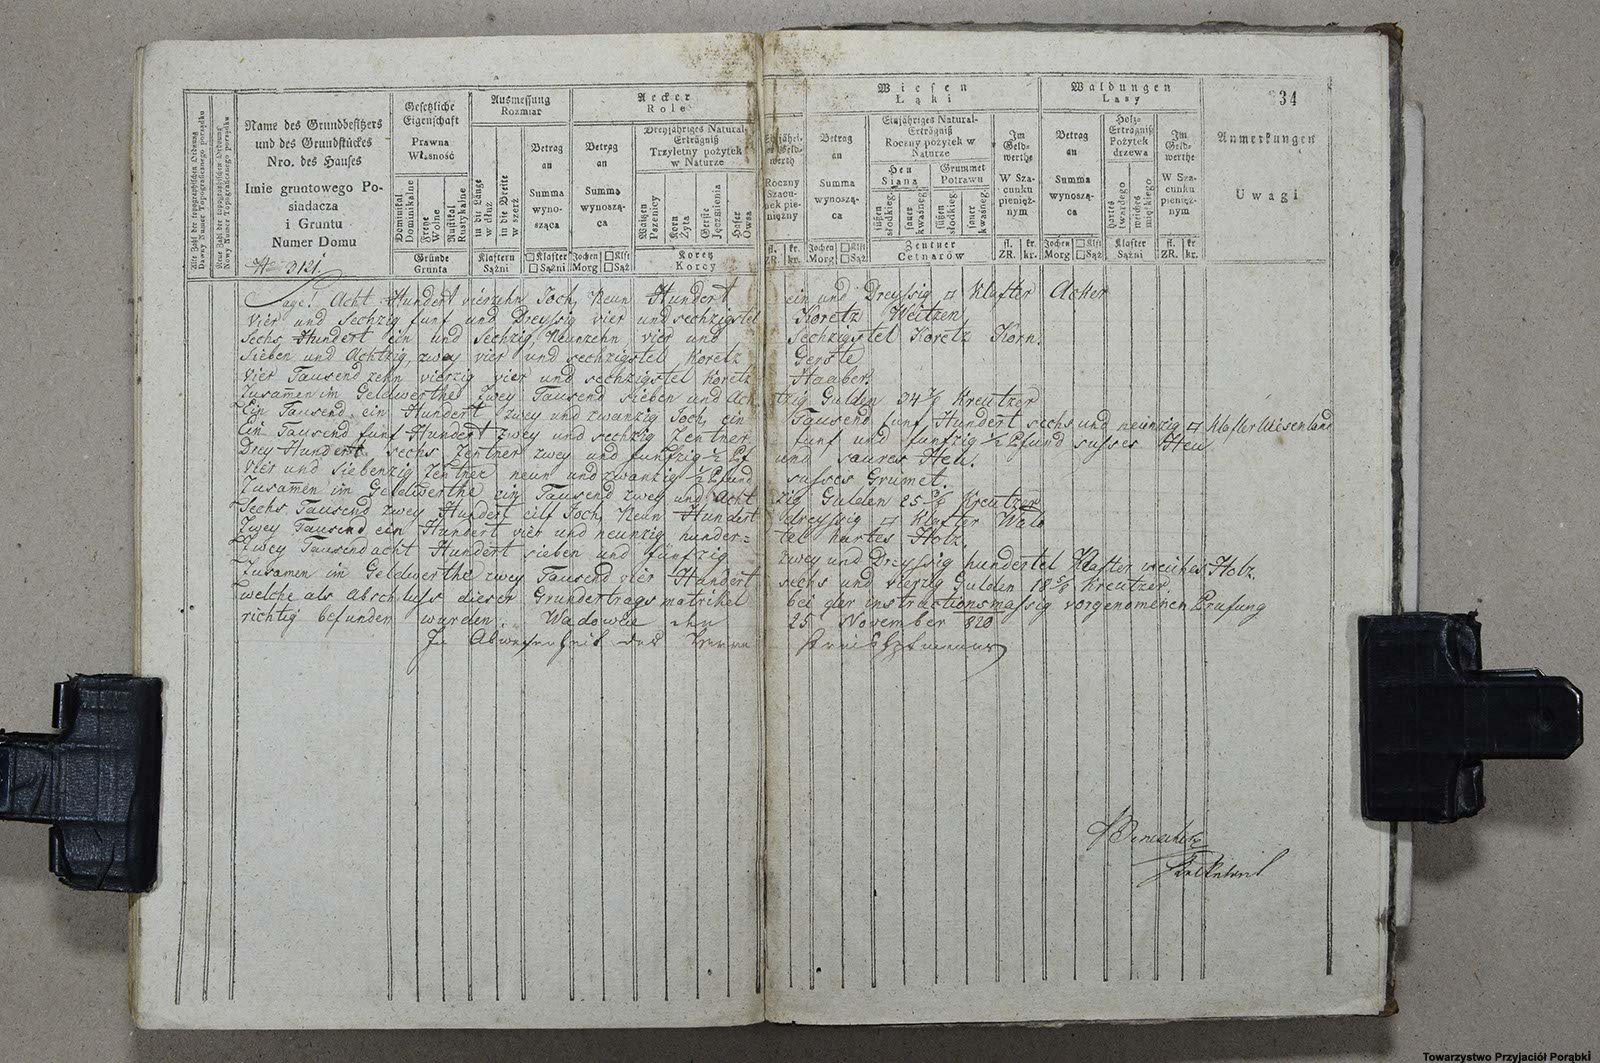 334
Alte Zahl der topographischen Ordnung
Dawny Numer Topograficznego porządku
Neue Zahl der topographischen Ordnung
Nowy Numer Topograficznego porządku
Name des Grundbesitzers
und des Grundstückes
Nro. des Hauses
Imie gruntowego Po-
siadacza
i Gruntu
Numer Domu
Gesetzliche
Eigenschaft
Prawna
Własność
Dominikal
Dominikalne
Freye
Wolne
Rustikal
Rustykalne
Gründe
Grunta
Ausmessung
Rozmiar
in die Länge
w dłuż
in die Breite
w szerż
Betrag
an
Summa
wyno-
sząca
Klaftern
Sążni
□ Klafter
□ Sążni
Aecker
Role
Betrag
an
Summa
wynoszą-
ca
Jochen □ Klft
Morg □ Sąż
Dreyjähriges Natural-
Erträgniß
Trzyletny pożytek
w Naturze
Waitzen
Pszenicy
Korn
Żyta
Gerste
Jęczmienia
Hafer
Owsa
Koretz
Korcy
Roczny
Szacu-
nek pie-
niężny
fl. kr.
ZR. kr.
Wiesen
Łąki
Betrag
an
Summa
wynoszą-
ca
Jochen □ Klft
Morg □ Sąż
Einjähriges Natural-
Erträgniß
Roczny pożytek w
Naturze
Heu
Siana
Grummet
Potrawu
süßen
słodkiego
sauer
kwaśnego
süßen
słodkieg.
sauer
kwaśneg.
Zentner
Cetnarów
Im
Geld-
werthe
W Sza-
cunku
pienięż-
nym
fl. kr.
ZR. kr.
Waldungen
Lasy
Betrag
an
Summa
wynoszą-
ca
Jochen □ Klft
Morg □ Sąż
Holz-
Erträgniß
Pożytek
drzewa
hartes
twardego
weiches
miękkiego
Klafter
Sążni
Im
Geld-
werthe
W Sza-
cunku
pienięż-
nym
fl. kr.
ZR. kr.
Anmerkungen
Uwagi
3121.
Sage! Acht Hundert vierzehn Joch, Neun Hundert ein und Dreyssig □ Klafter Acker
Vier und Sechzig fünf und Dreyssig vier und sechzigstel Koretz Weitzen
Sechs Hundert ein und Sechzig, Neunzehn vier und Sechzigstel Koretz Korn.
Sieben und Achtzig, zwey vier und sechzigstel Koretz Gerste
Vier Tausend zehn vierzig vier und sechzigstel Koretz Haaber.
Zusamen im Geldwerthe Zwey Tausend sieben und Achtzig Gulden 34 Kreutzer
Ein Tausend ein Hundert zwey und zwanzig Joch, ein Tausend fünf Hundert sechs und neunzig □ Klafter Wiesenland
Ein Tausend fünf Hundert zwey und sechzig Zentner fünf und funfzig ½ Pfund susses Heu
Drey Hundert sechs Zentner zwey und funfzig ½ Pf und saures Heu.
Vier und Siebenzig Zentner neun und zwanzig ½ Pfund susses Grumet.
Zusamen im Geldwerthe ein Tausend zwey und Achtzig Gulden 25 Kreutzer
Sechs Tausend zwey Hundert eilf Joch Neun Hundert Dreyssig □ Klafter Wald
Zwey Tausend ein Hundert vier und neunzig hunder=tel hartes Holz.
Zwey Tausend acht Hundert sieben und fünfzig zwey und Dreyssig hundertel Klafter weiches Holz.
Zusamen im Geldwerthe zwey Tausend vier Hundert sechs und vierzig Gulden 18 Kreutzer.
Welche als Abschluss dieser Grundertragsmatrikel bei der instractionsmassig vorgenomenen Prufung
richtig befunden wurden. Wadowice den 25 November 820
In Abwesenheit des Herrn Kreishptmanns
Towarzystwo Przyjaciół Porąbki